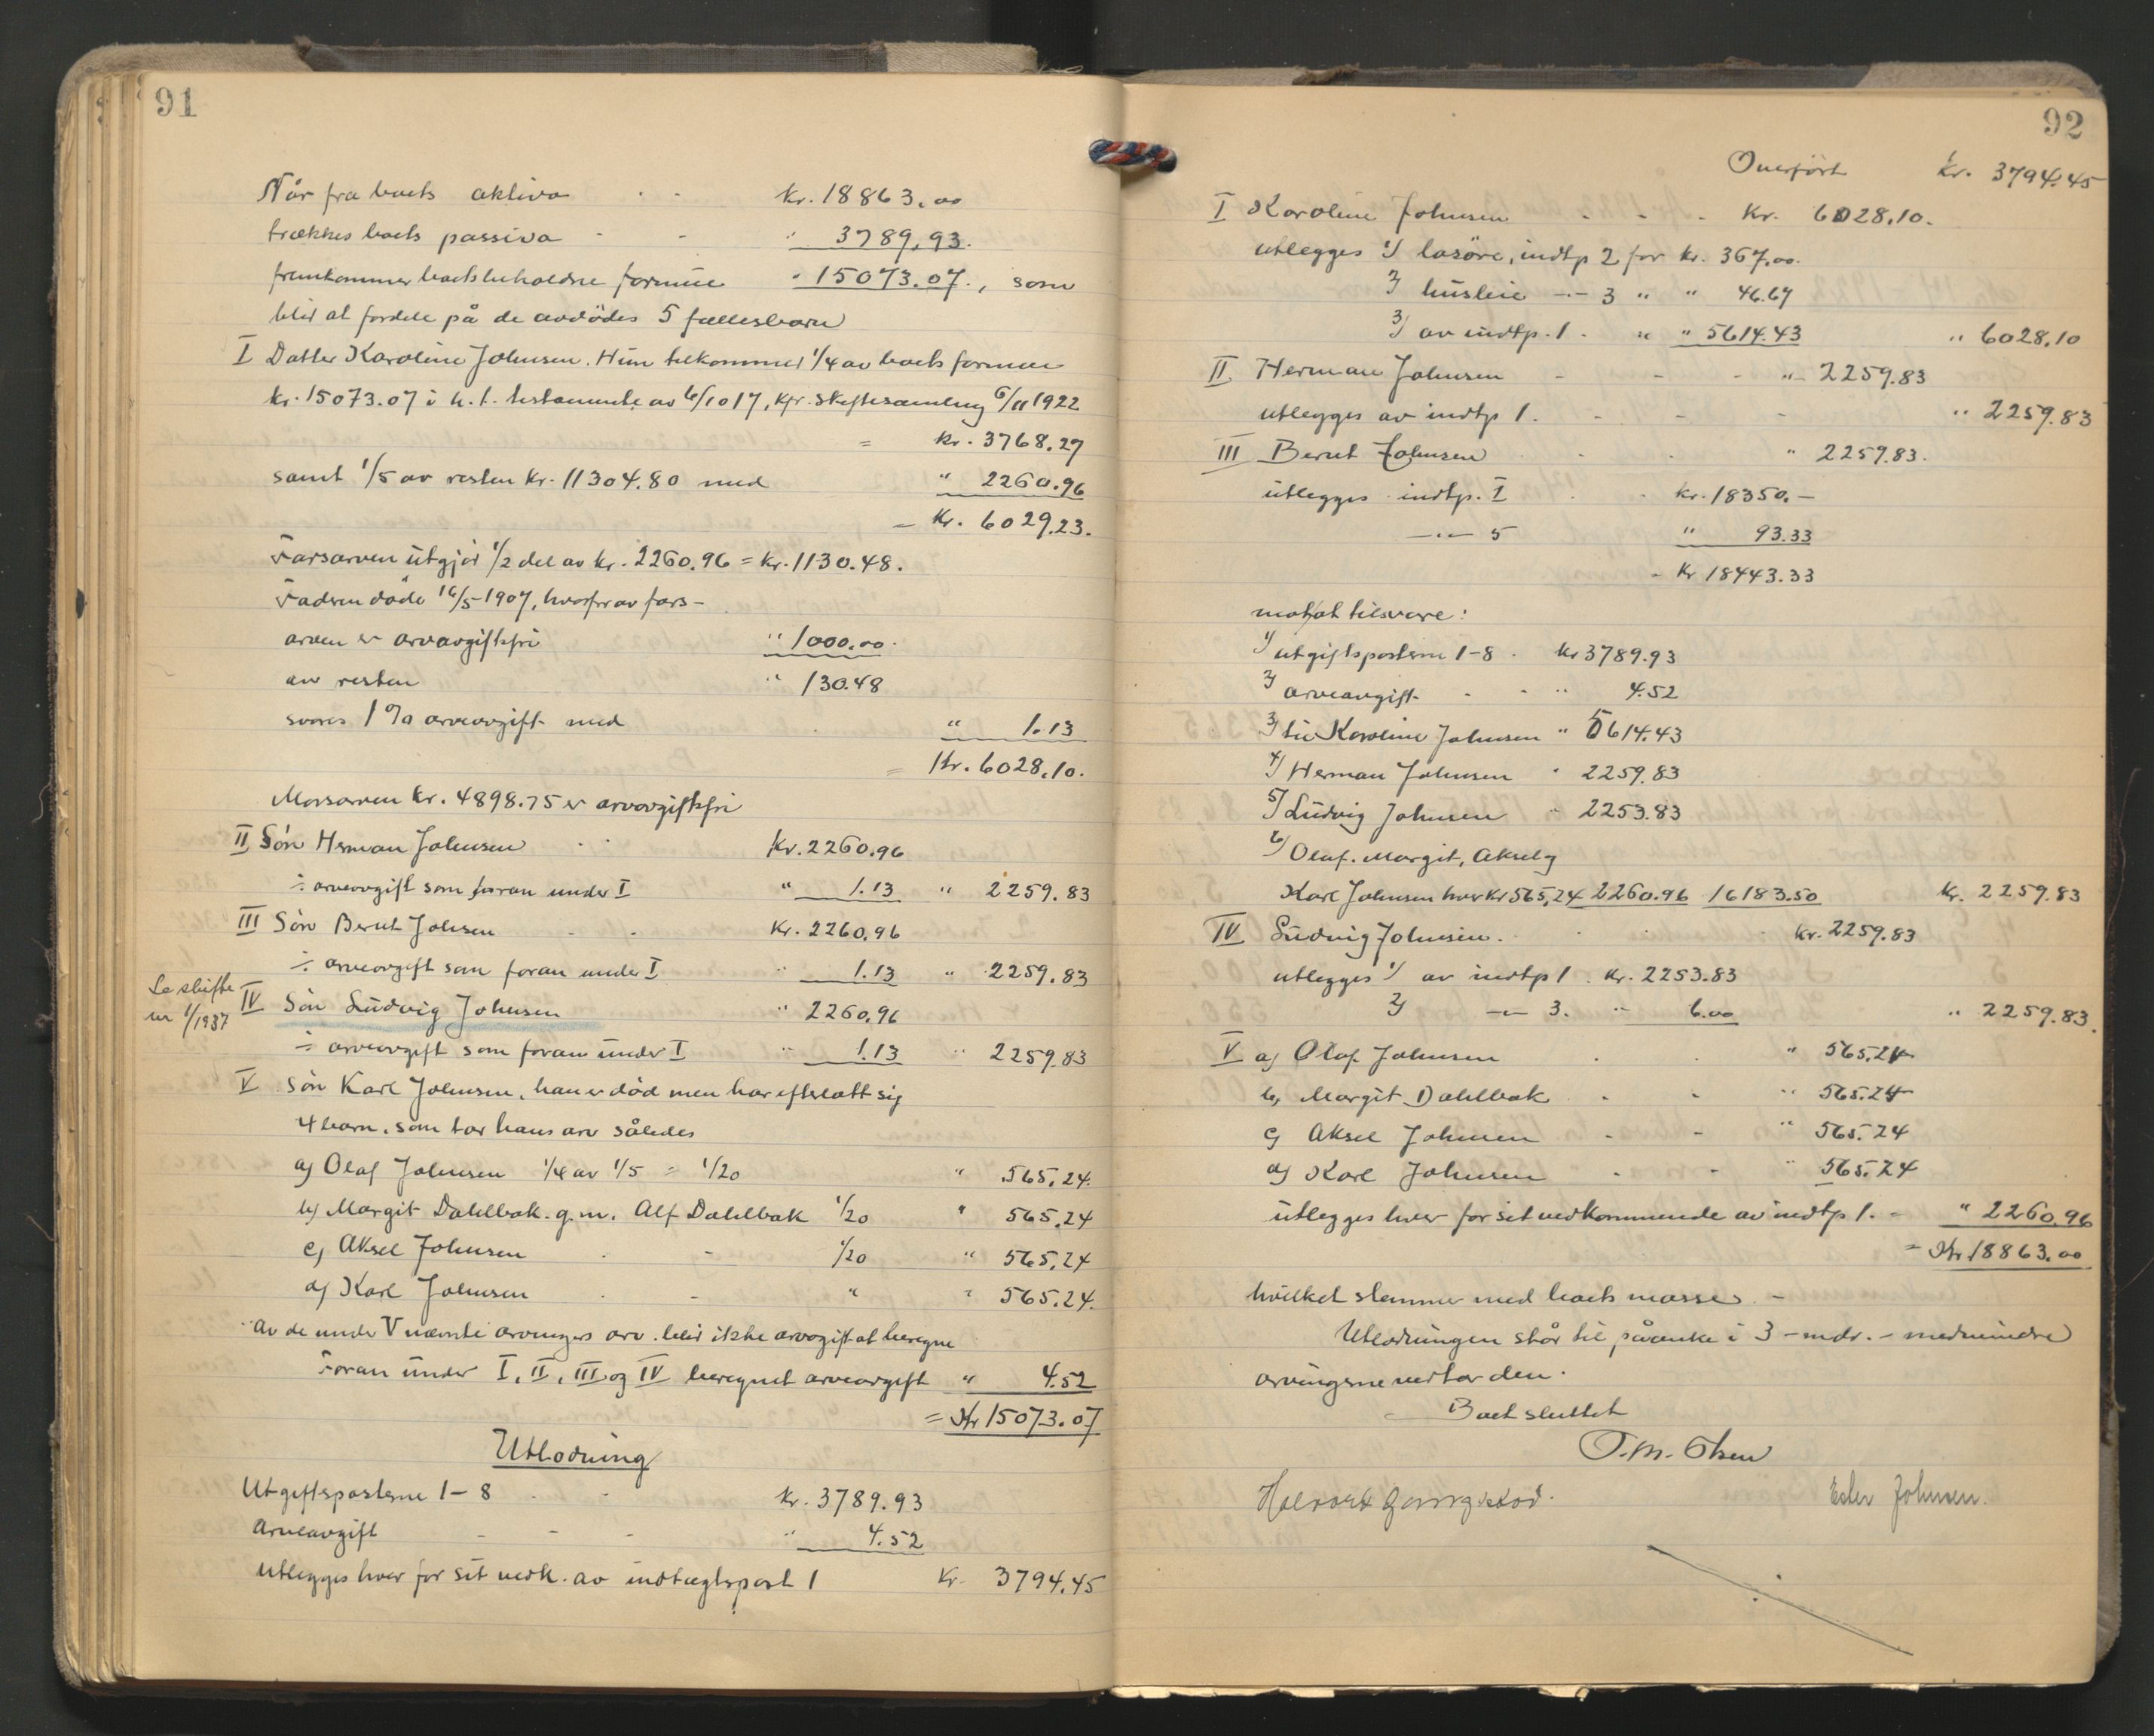 91
Når fra boets aktiva - - kr. 18863.00
trækkes boets passiva - - " 3789,93.
fremkommer boets beholdne formue " 15073.07., som
blir at fordele på de avdödes 5 fællesbarn
I Datter Karoline Johnsen. Hun tilkommer 1/4 av boets formue
kr. 15073.07 i h. t. testamente av 6/10 17, kfr. skiftesamling 6/11 1922
= kr. 3768.27
samt 1/5 av resten kr. 11304.80 med " 2260.96
= Kr. 6029.23.
Farsarven utgjör 1/2 del av kr. 2260.96 = kr. 1130.48.
Faderen döde 16/5-1907, hvorfor av fars-
arven er arvavgiftsfri " 1000.00.
av resten " 130.48
svares 1% arveavgift med " 1.13
= Kr. 6028.10.
Morsarven kr. 4898.75 er arvavgiftsfri
II Sön Herman Johnsen - - Kr. 2260.96
÷ arveavgift som foran under I " 1.13 " 2259.83
III Sön Bernt Johsen - - Kr. 2260.96
÷ arveavgift som foran under I " 1.13 " 2259.83
Se skifte
nr 1/1937
IV Sön Ludvig Johnsen " 2260.96
÷ arveavgift som foran under I " 1.13 " 2259.83
V Sön Karl Johnsen, han er död men har efterlatt sig
4 barn, som tar hans arv således
a) Olaf Johnsen 1/4 av 1/5 = 1/20 " 565.24.
b) Margit Dahlbak. g.m. Alf Dahlbak 1/20 " 565.24
c) Aksel Johnsen - - 1/20 " 565.24
d) Karl Johnsen - - " " 565.24.
Av de under V nævnte arvingers arv blir ikke arvavgift at beregne
Foran under I, II, III og IV beregnet arveavgift " 4.52
= Kr 15073.07
Utlodning
Utgiftsposterne 1-8 - - kr. 3789.93
Arveavgift - - - " 4.52
utlegges hver for sit vedk. av indtægtspost 1 Kr. 3794.45
92
Overfört kr. 3794.45
I Karoline Johnsen - - - Kr. 6028.10.
utlegges 1) lösöre, indtp 2 for kr. 367.00.
2) husleie -"- 3 " " 46.67
3) av indtp. 1 - " " 5614.43 " 6028.10
II Herman Johnsen - - - " 2259.83
utlegges av indtp 1. - - - " 2259.83
III Bernt Johnsen - - " 2259.83.
utlegges indtp. I - - kr. 18350.-
-"- 5 " 93.33
= Kr 18443.33
mot at tilsvare:
1) utgiftsposterne 1-8 . kr 3789.93
2) arveavgift - - " 4.52
3) til Karoline Johnsen " 5614.43
4) Herman Johnsen " 2259.83
5) Ludvig Johnsen " 2253.83
6) Olaf. Margit, Aksel og
Karl Johnsen hver kr 565,24 2260.96 16183.50 Kr. 2259.83
IV Ludvig Johnsen. - - - kr. 2259.83
utlegges 1) av indtp 1 . Kr. 2253.83
2) -"- 3. " 6.00 " 2259.83.
V a) Olaf Johnsen - - " 565.24
b) Margit Dahlbak - - " 565.24
c) Aksel Johnsen - - " 565.24
d) Karl Johnsen - - " 565.24
utlegges hver for sit vedkommende av indtp 1. - " 2260.96
= Kr 18863.00
hvilket stemmer med boets masse. -
Utlodningen står til påanke i 3 - mdr. - medmindre
arvingerne vedtar den.
Boet sluttet
O. M. Olsen
Ester Johnsen.